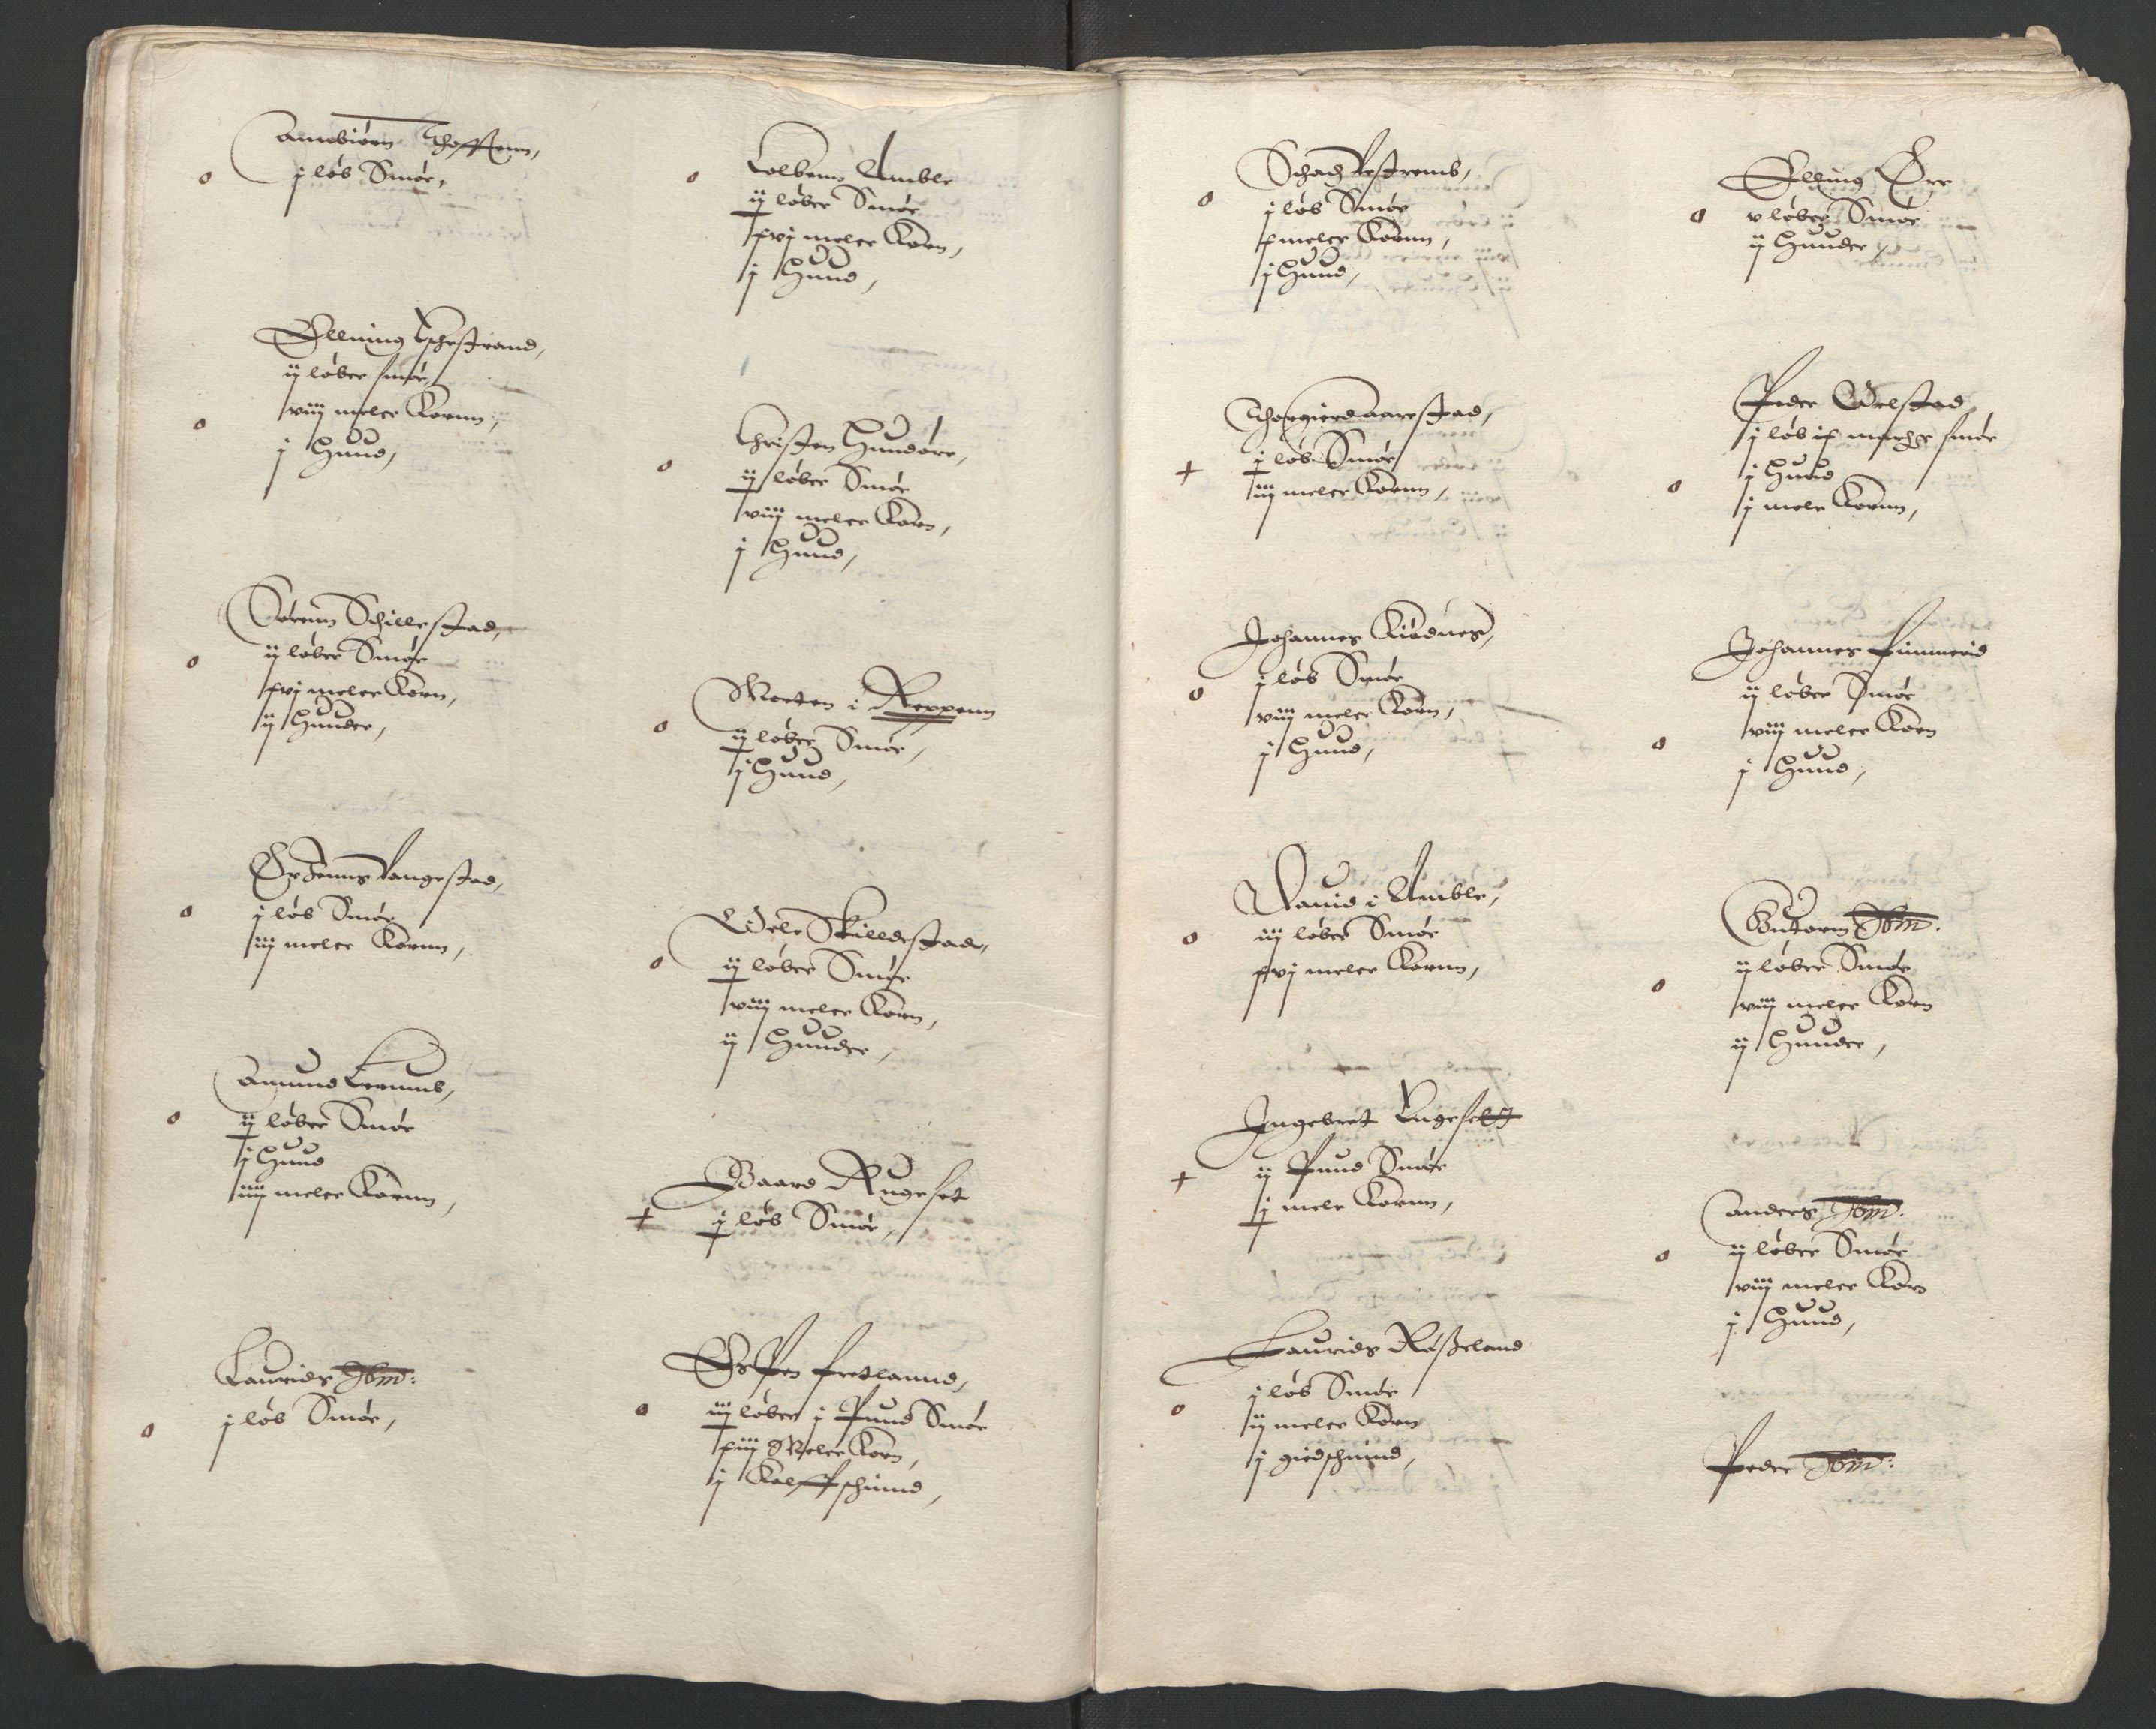 Annbiörn Thofftenn,
j løb Smør,
Ellning Vestrand,
ij løber smør,
viij meler Kornn,
j Hund,
Sørenn Schillestad,
ij løber Smør
xvj meler Korn,
ij Hunder,
Vangestad,
j løb Smør
iij meler Kornn,
Amund
ij løber Smør
j Hund
iiij meler Kornn,
Laurids Ibm:
j løb Smør,
Kolbenn Amble
ij løber Smør
xvj meler Korn,
j Hund,
Christen Hundøre,
ij løber Smør
viij meler Korn,
j Hund,
Morten i Reppenn
ij løber Smør,
j Hund,
Skilldestade,
ij løber Smør
viij meler Korn,
ij Hunder,
Baard Rugeset
j løb Smør,
Espen fretlannd,
iij løber j Pund Smør
xiij Meler Korn,
j Kalffschinnd,
Vestremb,
j løb Smør
x meler Kornn,
j Hund,
Thorgierd aarestad,
j løb Smør
iij meler Kornn,
Johannes Kiødnes,
j løb Smør
viij meler Korn,
j Hund,
Dauid i Amble,
iij løber Smør
xvj meler Kornn,
Ingebret
ij Pund Smør
j mele Kornn,
Laurids Røsseland
j løb Smør
ij meler Korn
j giedschinnd,
Elling Øre
v løber Smør
ij Hunder,
Peder Velstad
j løb ix marcher smør
j Hund
j mele Kornn,
Johannes Fimmeid
ij løber Smør
viij meler Korn
j Hund,
Gutorm Ibm:
ij løber Smør
viij meler Korn
ij Hunder,
Anders Ibm:
ij løber Smør
viij meler Korn
j Hund,
Peder Ibm: